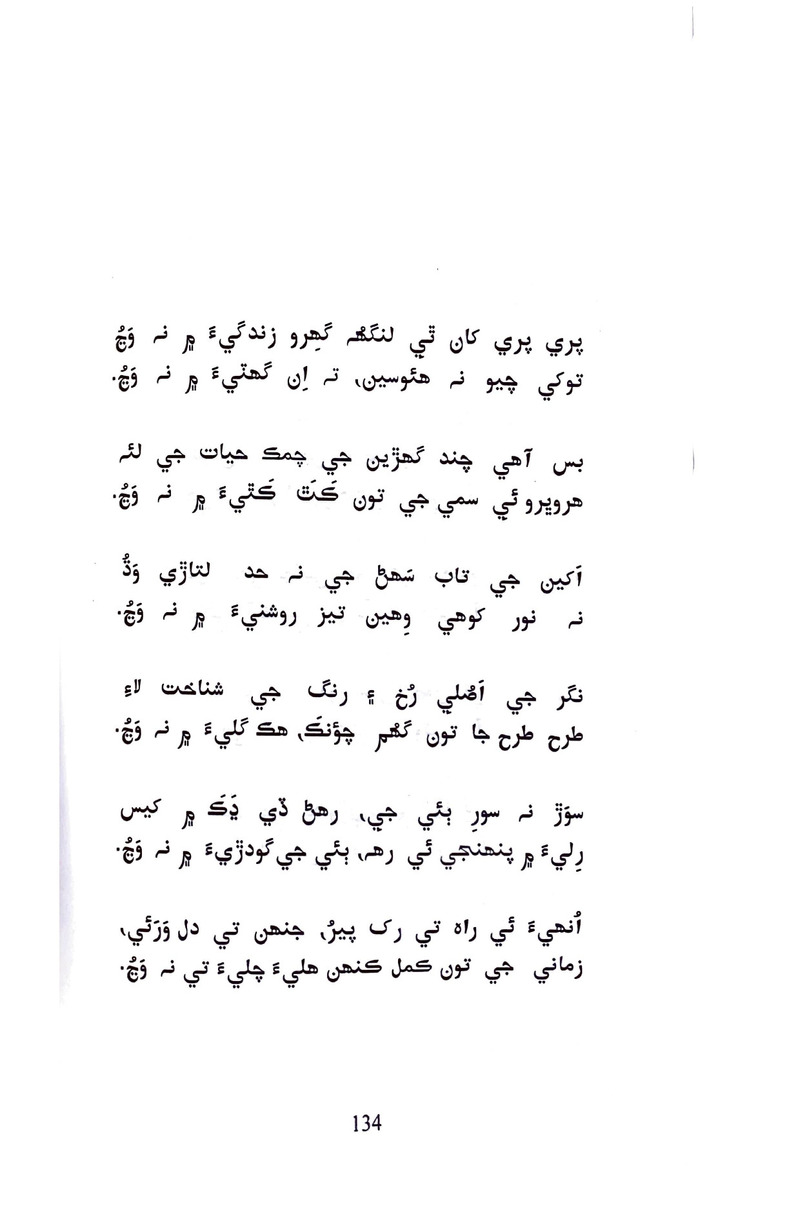 پري پري کان ٿي لنگهہ گهِرو زندگيءَ ۾ نہ وَڃُ
توکي چيو نہ هئوسين، تہ اِن گهٽيءَ ۾ نہ وَڃُ.
بس آهي چند گهڙين جي چمڪ حيات جي لئہ
هروڀرو ئي سمي جي تون ڪَٿَ ڪَٿيءَ ۾ نہ وَڃُ.
اَکين جي تاب سَهڻ جي نہ حد لتاڙي وَڌُ
نہ نور کوهي وِهين تيز روشنيءَ ۾ نہ وَڃُ.
نگر جي اَصُلي رُخ ۽ رنگ جي شناخت لاءِ
طرح طرح جا تون گهُم چؤنڪَ، هڪ گليءَ ۾ نہ وَڃُ.
سوَڙ نہ سورِ ٻئي جي، رهڻ ڏي ڍَڪَ ۾ کيس
رِليءَ ۾ پنهنجي ئي رهہ، ٻئي جي گودڙيءَ ۾ نہ وَڃُ.
اُنهيءَ ئي راه تي رک پيرُ، جنهن تي دل وَرَئي،
زماني جي تون ڪمل ڪنهن هليءَ چليءَ تي نہ وَڃُ.
134